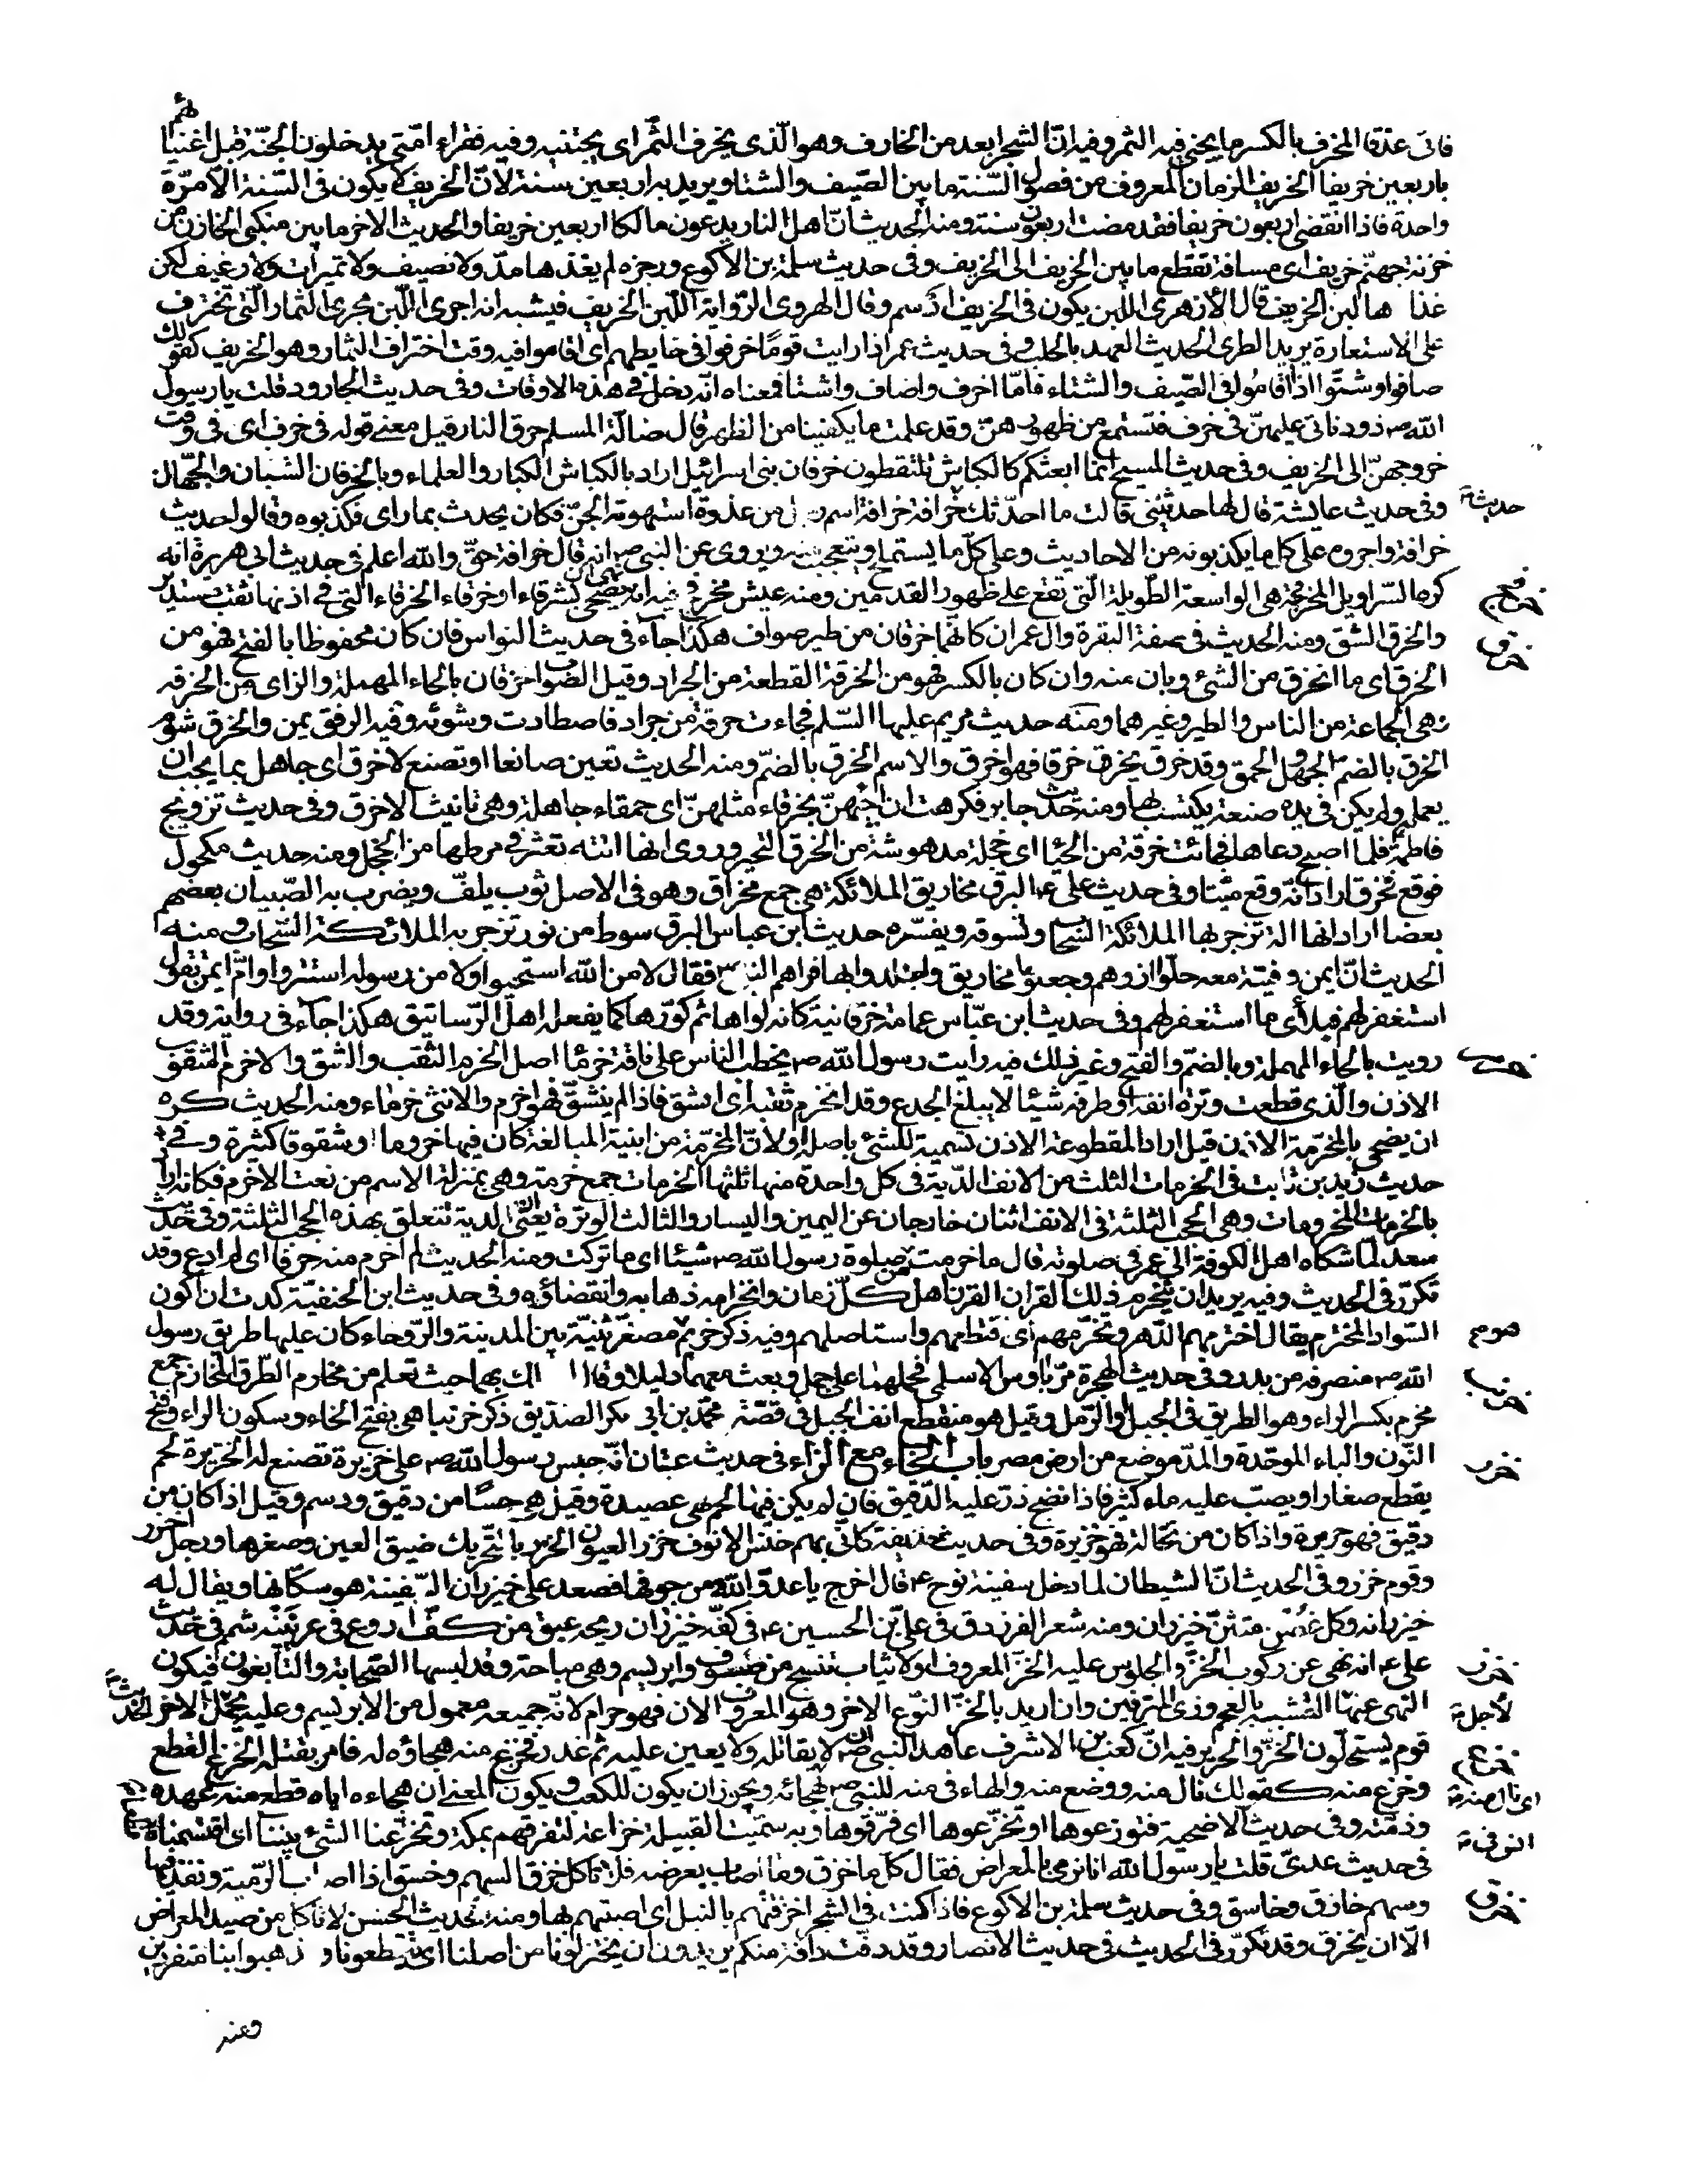 فاتى عذقا المخرف بالكسر ما يجتنى فيه الثمر وفيه انّ الشجر ابعد من الخارف وهو الّذى يخرف الثّمر اى يجتنيه وفيه فقراء امّتى يدخلون الجنّة قبل اغنيائهم
باربعين خريفا الخريف الزمان المعروف من فصول السّنة ما بين الصّيف والشتا ويريد به اربعين سنة لانّ الخريف لا يكون فى السّنة الّا مرّة
واحدة فاذا انقضى اربعون خريفا فقد مضت اربعون سنة ومنه الحديث انّ اهل النار يدعون مالكا اربعين خريفا والحديث الاخر ما بين منكبى الخازن من
خزنة جهنّم خريف اى مسافة تقطع ما بين الخريف الى الخريف وفى حديث سلمة بن الاكوع ورجزه لم يغذها مدّ ولا نصيف ولا تميرات ولا رغيف لكن
غذا ها لبن الخريف قال الأزهرى اللبن يكون فى الخريف ادسم وقال الهروى الرّواية اللّبن الخريف فيشبه انه اجرى اللّبن مجرى الثمار الّتى تخترف
على الاستعارة يريد الطرى الحديث العهد بالحلب وفى حديث عمر اذا رايت قومًا خرفوا فى حايطهم اى اقاموا فيه وقت اختراف الثمار وهو الخريف كقولك
صافوا وشتّوا اذا اقامُوا فى الصّيف والشتاء فامّا اخرف واضاف واشتا فمعناه انّه دخل فى هذه الاوقات وفى حديث الجارود قلت يا رسول
الله ص ذود ناتى عليهنّ فى خرف فنستمتع من ظهورهنّ وقد علمت ما يكفينا من الظهر قال ضالّة المسلم حرق النار قيل معنى قوله فى خرف اى فى وقت
خروجهنّ الى الخريف وفى حديث المسيح انّما ابعثكم كالكباش تلتقطون خرفان بنى اسرائيل اراد بالكباش الكبار والعلماء وبالخرفان الشبان والجهّال
وفى حديث عايشة قال لها حدثينى قالت ما احدّثك حديث خرافة خرافة اسم رجل من عذرة استهوته الجنّ فكان يحدث بما راى فكذبوه وقالوا حديث
خرافة واجروه على كل ما يكذبونه من الاحاديث وعلى كلّ ما يستملح ويتعجب منه ويروى عن النبى ص انه قال خرافة حقّ والله اعلم فى حديث ابى هريرة انه
خرفج
كره السّراويل المخرفجة هى الواسعة الطّويلة الّتى تقع على ظهور القدمين ومنه عيش مخرفج فيه انه نهى ان يضحى بشرقاء او خرقاء الخرقاء التى فى اذنها ثقب مستدير
خرق
والخرق الشق ومنه الحديث فى صفة البقرة وال عمران كانّهما خرقان من طير صواف هكذا جاء فى حديث النواس فان كان محفوظا بالفتح فهو من
الخرق اى ما انخرق من الشئ وبان منه وان كان بالكسر فهو من الخرقة القطعة من الجراد وقيل الصواب خزقان بالحاء المهملة والزاى من الحزقة
وهى الجماعة من الناس والطير وغيرهما ومنه حديث مريم عليها السّلم فجاءت خرقة من جراد فاصطادت وشوته وفيه الرفق يمن والخرق شوم
الخرق بالضمّ الجهل والحمق وقد خرق يخرق خرقا فهو اخرق والاسم الخرق بالضمّ ومنه الحديث تعين صانعا او تصنع لاخرق اى جاهل بما يجب ان
يعمله ولم يكن فى يده صنعة يكتسب بها ومنه حديث جابر فكرهت ان اجيئهنّ بخرقاء مثلهنّ اى حمقاء جاهلة وهى تانيث الاخرق وفى حديث تزويج
فاطمة فلما اصبح دعاها فجائت خرقة من الحيا اى خجلة مدهوشة من الخرق التحير وروى انها اتته تعثر فى مرطها من الخجل ومنه حديث مكحول
فوقع فخرق اراد انّه وقع ميّتا وفى حديث على ع البرق مخاريق الملائكة هى جمع مخراق وهو فى الاصل ثوب يلفّ ويضرب به الصّبيان بعضهم
بعضا اراد انها الة تزجر بها الملائكة السحاب وتسوقه ويفسّره حديث ابن عباس البرق سوط من نور تزجر به الملائكة السّحاب ومنه
الحديث انّ ايمن وفتية معه حلّوا ازرهم وجعلوها مخاريق واجتلدوا بها فراهم النبى ص فقال لا من الله استحيوا ولا من رسوله استتروا وامّ ايمن تقول
استغفر لهم فبلأى ما استغفر لهم وفى حديث ابن عبّاس عمامة خرقانية كانه لواها ثم كوّرها كما يفعله اهل الرّساتيق هكذا جاء فى رواية وقد
خرم
رويت بالحاء المهملة وبالضمّ والفتح وغير ذلك فيه رايت رسول الله ص يخطب الناس على ناقة خرماء اصل الخرم الثقب والشق والاخرم المثقوب
الاذن والّذى قطعت وترة انفه او طرفه شيئا لا يبلغ الجدع وقد انخرم ثقبه اى انشق فاذا لم ينشقّ فهو اخرم والانثى خرماء ومنه الحديث كره
ان يضحى بالمخرّمة الاذن قيل اراد المقطوعة الاذن تسمية للشئ باصله اولانّ المخرّمة من ابنية المبالغة كان فيها خروما وشقوقا كثيرة وفى
حديث زيد بن ثابت فى الخرمات الثلث من الانف الدّية فى كل واحدة منها ثلثها الخرمات جمع خرمة وهى بمنزلة الاسم من نعت الاخرم فكانه اراد
بالخرمات المخرومات وهى الحجب الثلثة فى الانف اثنان خارجان عن اليمين واليسار والثالث الوترة يعنى انّ الدية تتعلق بهذه الحجب الثلثة وفى حديث
سعد لمّا شكاه اهل الكوفة الى عمر فى صلوته قال ما خرمت من صلوة رسول الله ص شيئا اى ما تركت ومنه الحديث لم اخرم منه حرفا اى لم ادع وقد
تكرّر فى الحديث وفيه يريد ان يتخرم ذلك القرن القرن اهل كلّ زمان وانخرامه ذهابه وانقضاؤه وفى حديث ابن الحنفيّة كدت ان اكون
السّواد المخترم يقال اخترمهم الدّهر وتخرّمهم اى قتطعهم واستاصلهم وفيه ذكر خريم مصغّر ثنيّة بين المدينة والرّوحاء كان عليها طريق رسول
الله ص منصرفه من بدر وفى حديث الهجرة مرّا باوس الاسلمى فحملهما على جمل وبعث معهما دليلا وقال اسلك بهما حيث تعلم من مخارم الطّرق المخارم جمع
خرنب
مخرم بكسر الراء وهو الطريق فى الجبل او الرّمل وقيل هو منقطع انف الجبل فى قصّة محمّد بن ابى بكر الصدّيق ذكر خرنبا هى بفتح الخاء وسكون الراء وفتح
خزر
النّون والباء الموحّدة والمدّ موضع من ارض مصر باب الخاء مع الزاء فى حديث عتبان انّه حبس رسول الله ص على خزيرة تصنع له الخزيرة لحم
يقطع صغارا ويصبّ عليه ماء كثير فاذا نضج ذرّ عليه الدّقيق فان لم يكن فيها لحم فهى عصيدة وقيل هى حسًا من دقيق ودسم وقيل اذا كان من
دقيق فهو حريرة واذا كان من نخالة فهو خزيرة وفى حديث حذيفة كانّى بهم خنس الانوف خزر العيون الخزر بالتّحريك ضيق العين وصغرها ورجل اخزر
وقوم خزر وفى الحديث انّ الشيطان لما دخل سفينة نوح ع قال اخرج يا عدوّ الله من جوفها فصعد على خيزران السّفينة هو سكّانها ويقال له
خيزرانه وكل غصن متثنّ خيزران ومنه شعر الفرزدق فى علىّ بن الحسين ع فى كفّه خيزران ريحه عبق من كفّ اروع فى عرنينه شمم فى حديث
خزز
على ع انه نهى عن ركوب الخزّ والجلوس عليه الخزّ المعروف اولا ثياب تنسج من صوف وابريسم وهى مباحة وقد لبسها الصّحابة والتّابعون فيكون
النهى عنها لأجل التشبه بالعجم وزىّ المترفين وان اريد بالخزّ النّوع الاخر وهو المعروف الان فهو حرام لانّه جميعه معمول من الابريسم وعليه يحمل الحديث الاخر
خزع
قوم يستحلّون الخزّ والحرير فيه انّ كعب بن الاشرف عاهد النبى ص ان لا يقاتله ولا يعين عليه ثم غدر فخزع منه هجاؤه له فامر بقتله الخزع القطع
وخزع منه كقولك نال منه ووضع منه والهاء فى منه للنبى ص اى نال منه بهجائه ويجوز ان يكون للكعب ويكون المعنى ان هجاءه اياه قطع منه عهده
وذمّته وفى حديث الاضحية فتوزعوها او تخزّعوها اى فرّقوها وبه سمّيت القبيلة خزاعة لتفرقهم بمكة وتخزّعنا الشئ بيننا اى اقتسمناه
خزق
فى حديث عدىّ قلت يا رسول الله انا نرمى بالمعراض فقال كل ما خزق وما اصاب بعرضه فلا تاكل خزق السهم وخسق اذا اصاب الرّمية ونفذ فيها
وسهم خازق وخاسق وفى حديث سلمة بن الاكوع فاذا كنت فى الشجر اخزقتهم بالنبل اى اصبتهم بها ومنه حديث الحسن لا تاكل من صيد المعراض
الّا ان يخزق وقد تكرّر فى الحديث فى حديث الانصار وقد دفّت دافّة منكم يريدون ان يختزلونا من اصلنا اى يقتطعونا ويذهبوا بنا متفردين
وعنه